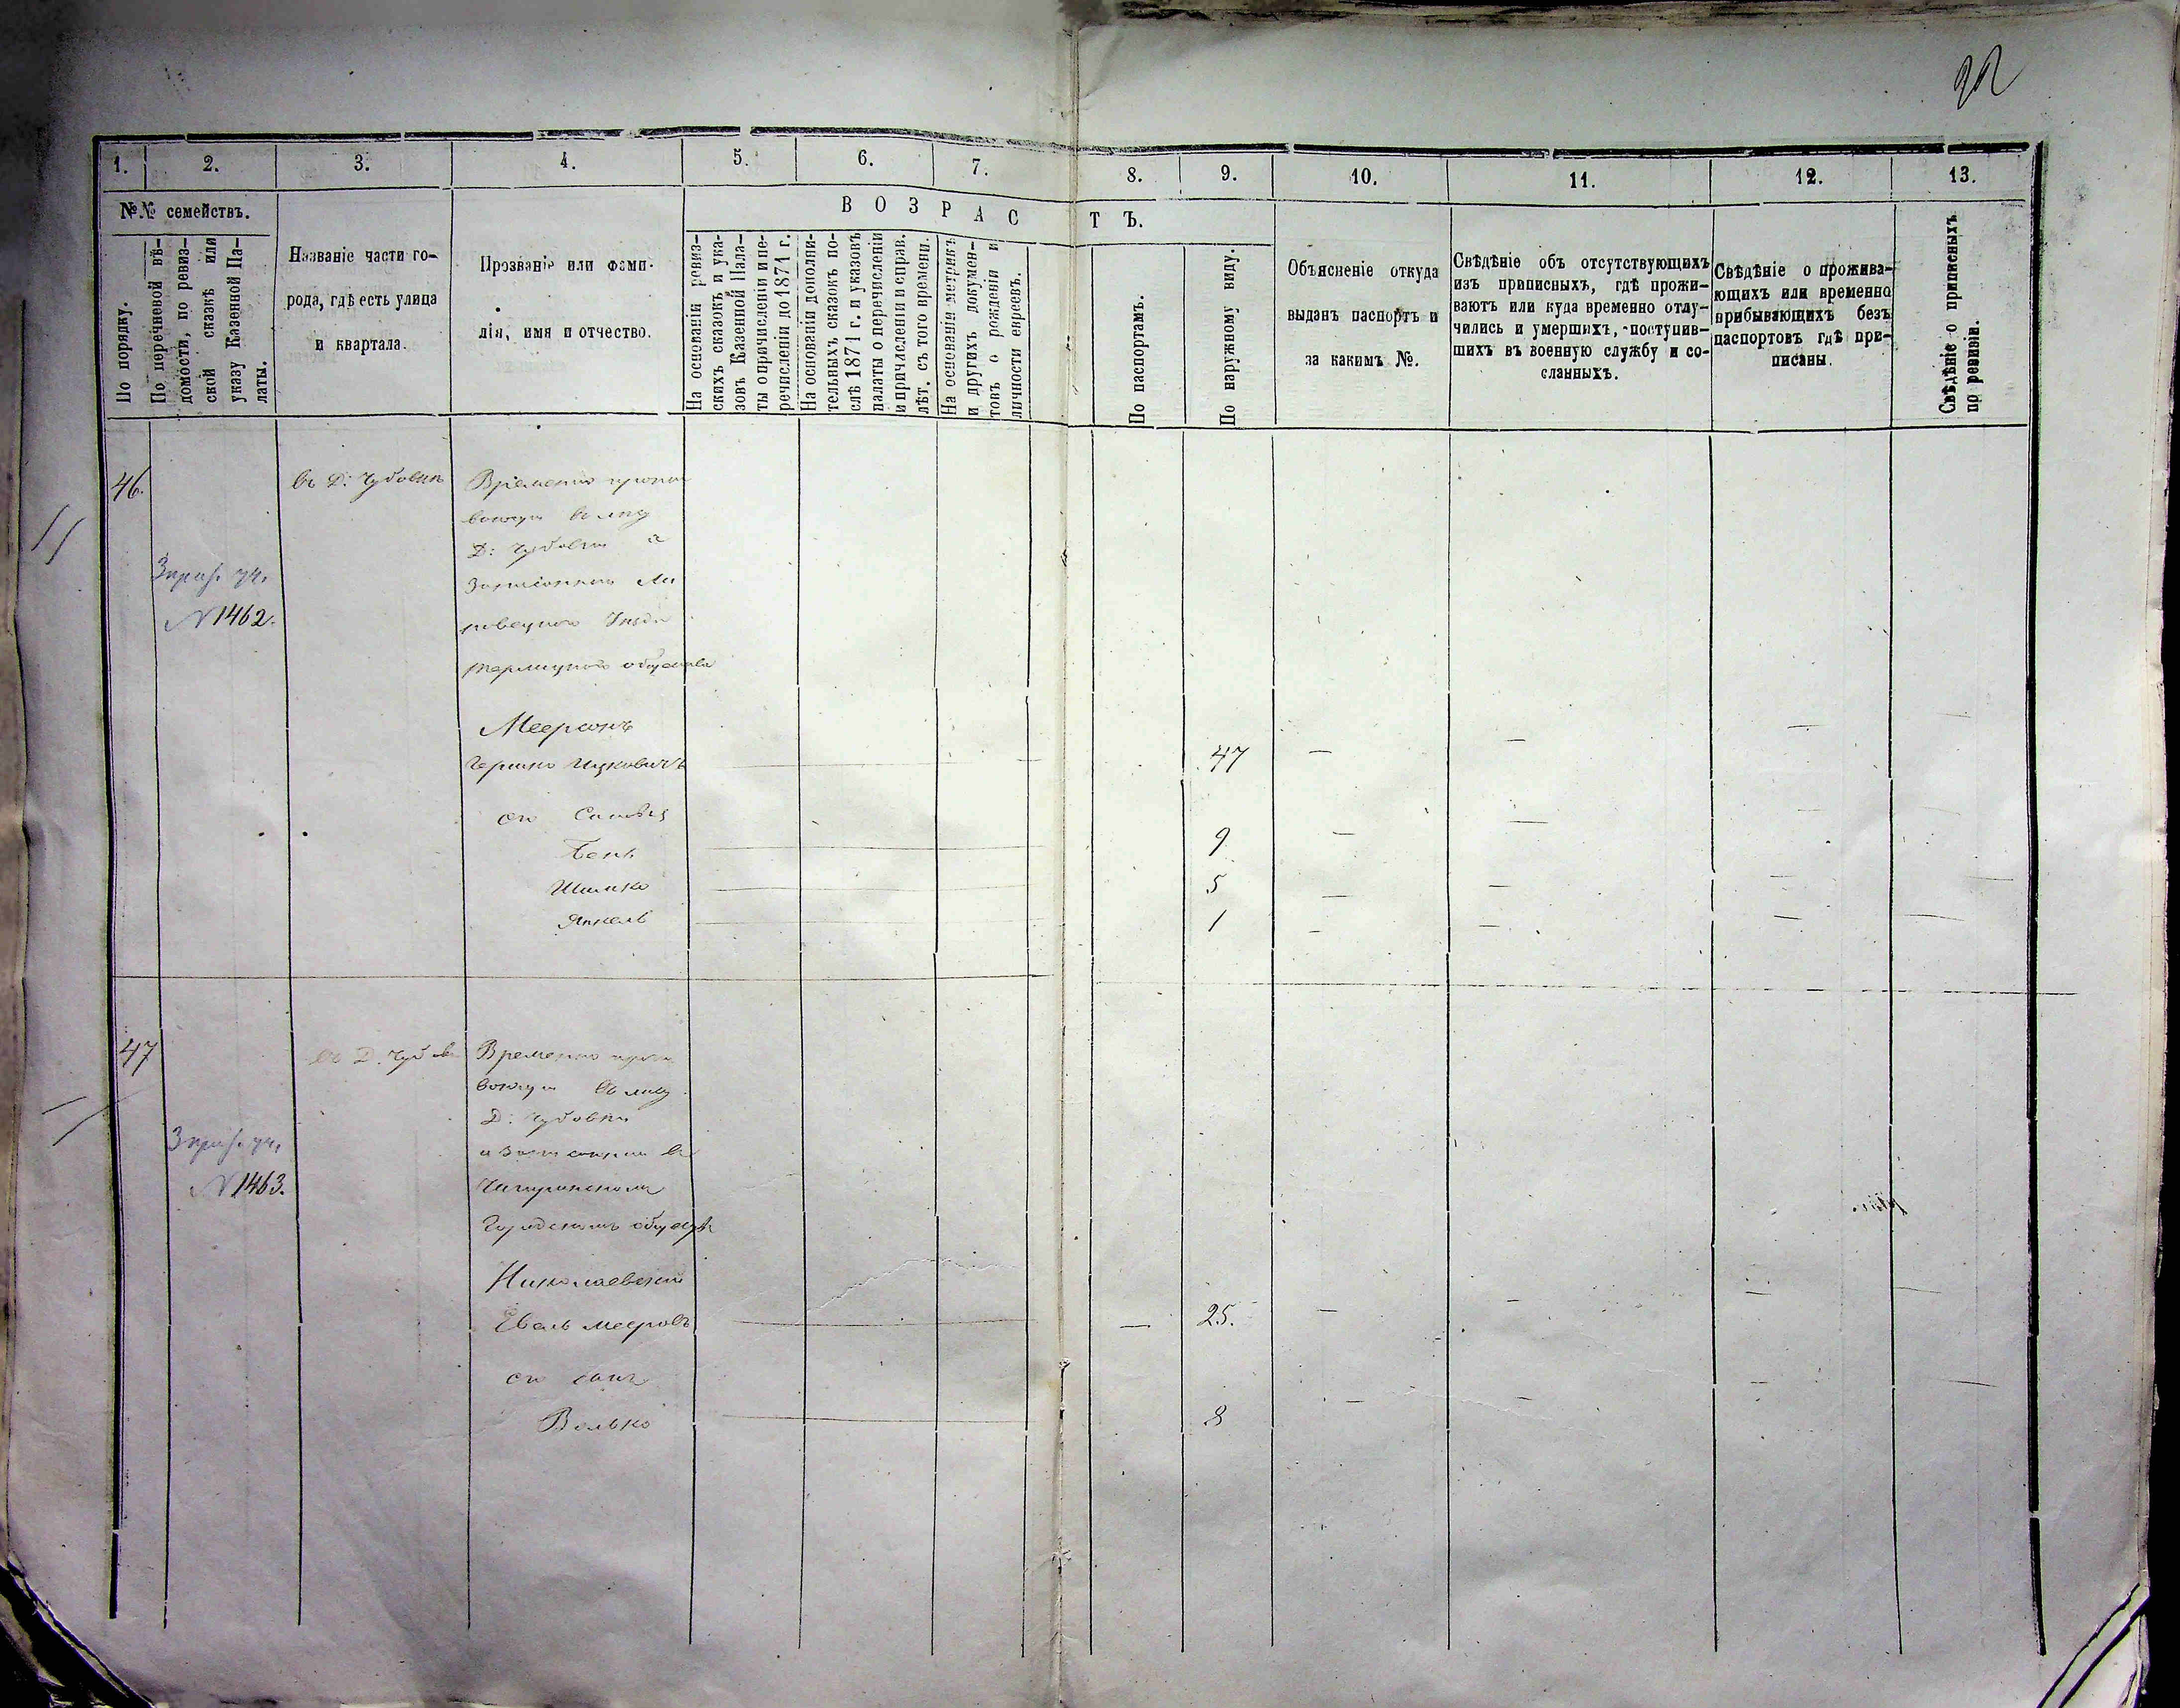 1.
2.
3.
4.
5.
6.
7.
8.
9.
10.
11.
12.
13.
№№ семействъ.
По порядку.
По перечневой вѣ-
домости, по ревиз-
ской сказкѣ или
указу Казенной Па-
латы.
Названіе части го-
рода, гдѣ есть улица
и квартала.
Прозваніе или фами-
лія, имя и отчество.
ВОЗРАСТЪ.
На основаніи ревиз-
скихъ сказокъ и ука-
зовъ Казенной Пала-
ты о причисленіи и пе-
речисленіи до 1871 г.
На основаніи дополни-
тельныхъ сказокъ по-
слѣ 1871 г. и указовъ
палаты о перечисленіи
и причисленіи и справ.
лѣт. съ того времени.
На основаніи метрикъ
и другихъ докумен-
товъ о рожденіи и
личности евреевъ.
По паспортамъ.
По наружному виду.
Объясненіе откуда
выданъ паспортъ и
за какимъ №.
Свѣдѣніе объ отсутствующихъ
изъ приписныхъ, гдѣ прожи-
ваютъ или куда временно отлу-
чились и умершихъ, поступив-
шихъ въ военную службу и со-
сланныхъ.
Свѣдѣніе о прожива-
ющихъ или временно
прибывающихъ безъ
паспортовъ гдѣ при-
писаны.
Свѣдѣніе о приписныхъ
по ревизіи.
46.
въ Д: Чубовкѣ
Временно прожи
вающи въ
Д: Чубовки и
общества
№ 1462.
Меерсонъ
Гершко Ицковичъ
47
съ Сыновья
Бень
9
Шимко
5
Янкель
1
47
въ Д. Чубовк
Временно прожи
вающи въ
Д: Чубовки
и записанни въ
Чигиринскомъ
Городскомъ обществѣ
№ 1463.
Николаевскій
Евель Мееровъ
25.
съ сынъ
Волько
8